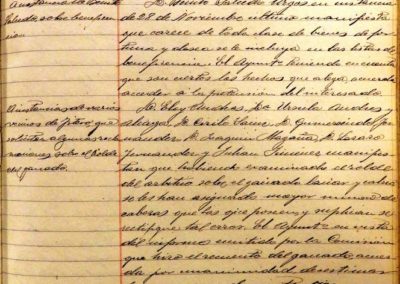 A instancia de Benito
Salcedo sobre beneficen-
cia
A instancia de varios
vecinos de Fitero que
solicitan algunas recla-
maciones sobre el reparto
del ganado.
D. Benito Salcedo Vargas en instancia
de 28 de Noviembre último manifiesta
que carece de toda clase de bienes de for-
tuna y desea se le incluya en las listas de
beneficencia. El Ayunt.º teniendo en cuenta
que son ciertos los hechos que alega, acuerda
acceder a la petición del interesado.
D. Eloy Andres, D.ª Ursula Andres y
D. Cirilo Sainz, D. Gumersindo Fer-
nandez D. Joaquin Magaña, D.
Fernandez y Julian Jimenez manifies-
tan que habiendo examinado el rolde
del arbitrio sobre el ganado lanar y cabrío
se les han asignado mayor número de
cabezas que las que poseen y suplican se
rectifique tal error. El Ayunt.º en vista
del informe emitido por la Comisión
que hizo el recuento del ganado acuer-
da por unanimidad desestimar